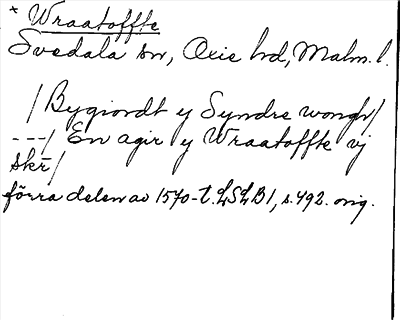 * Wraatoffte
Svedala sn, Oxie hd, Malm. l.
/ Bygiordt y Syndre wongh /
---/ En agir y Wraatoffte vj
skr̄ /
förra delen av 1570-t. LSLB 1, s. 492. orig.